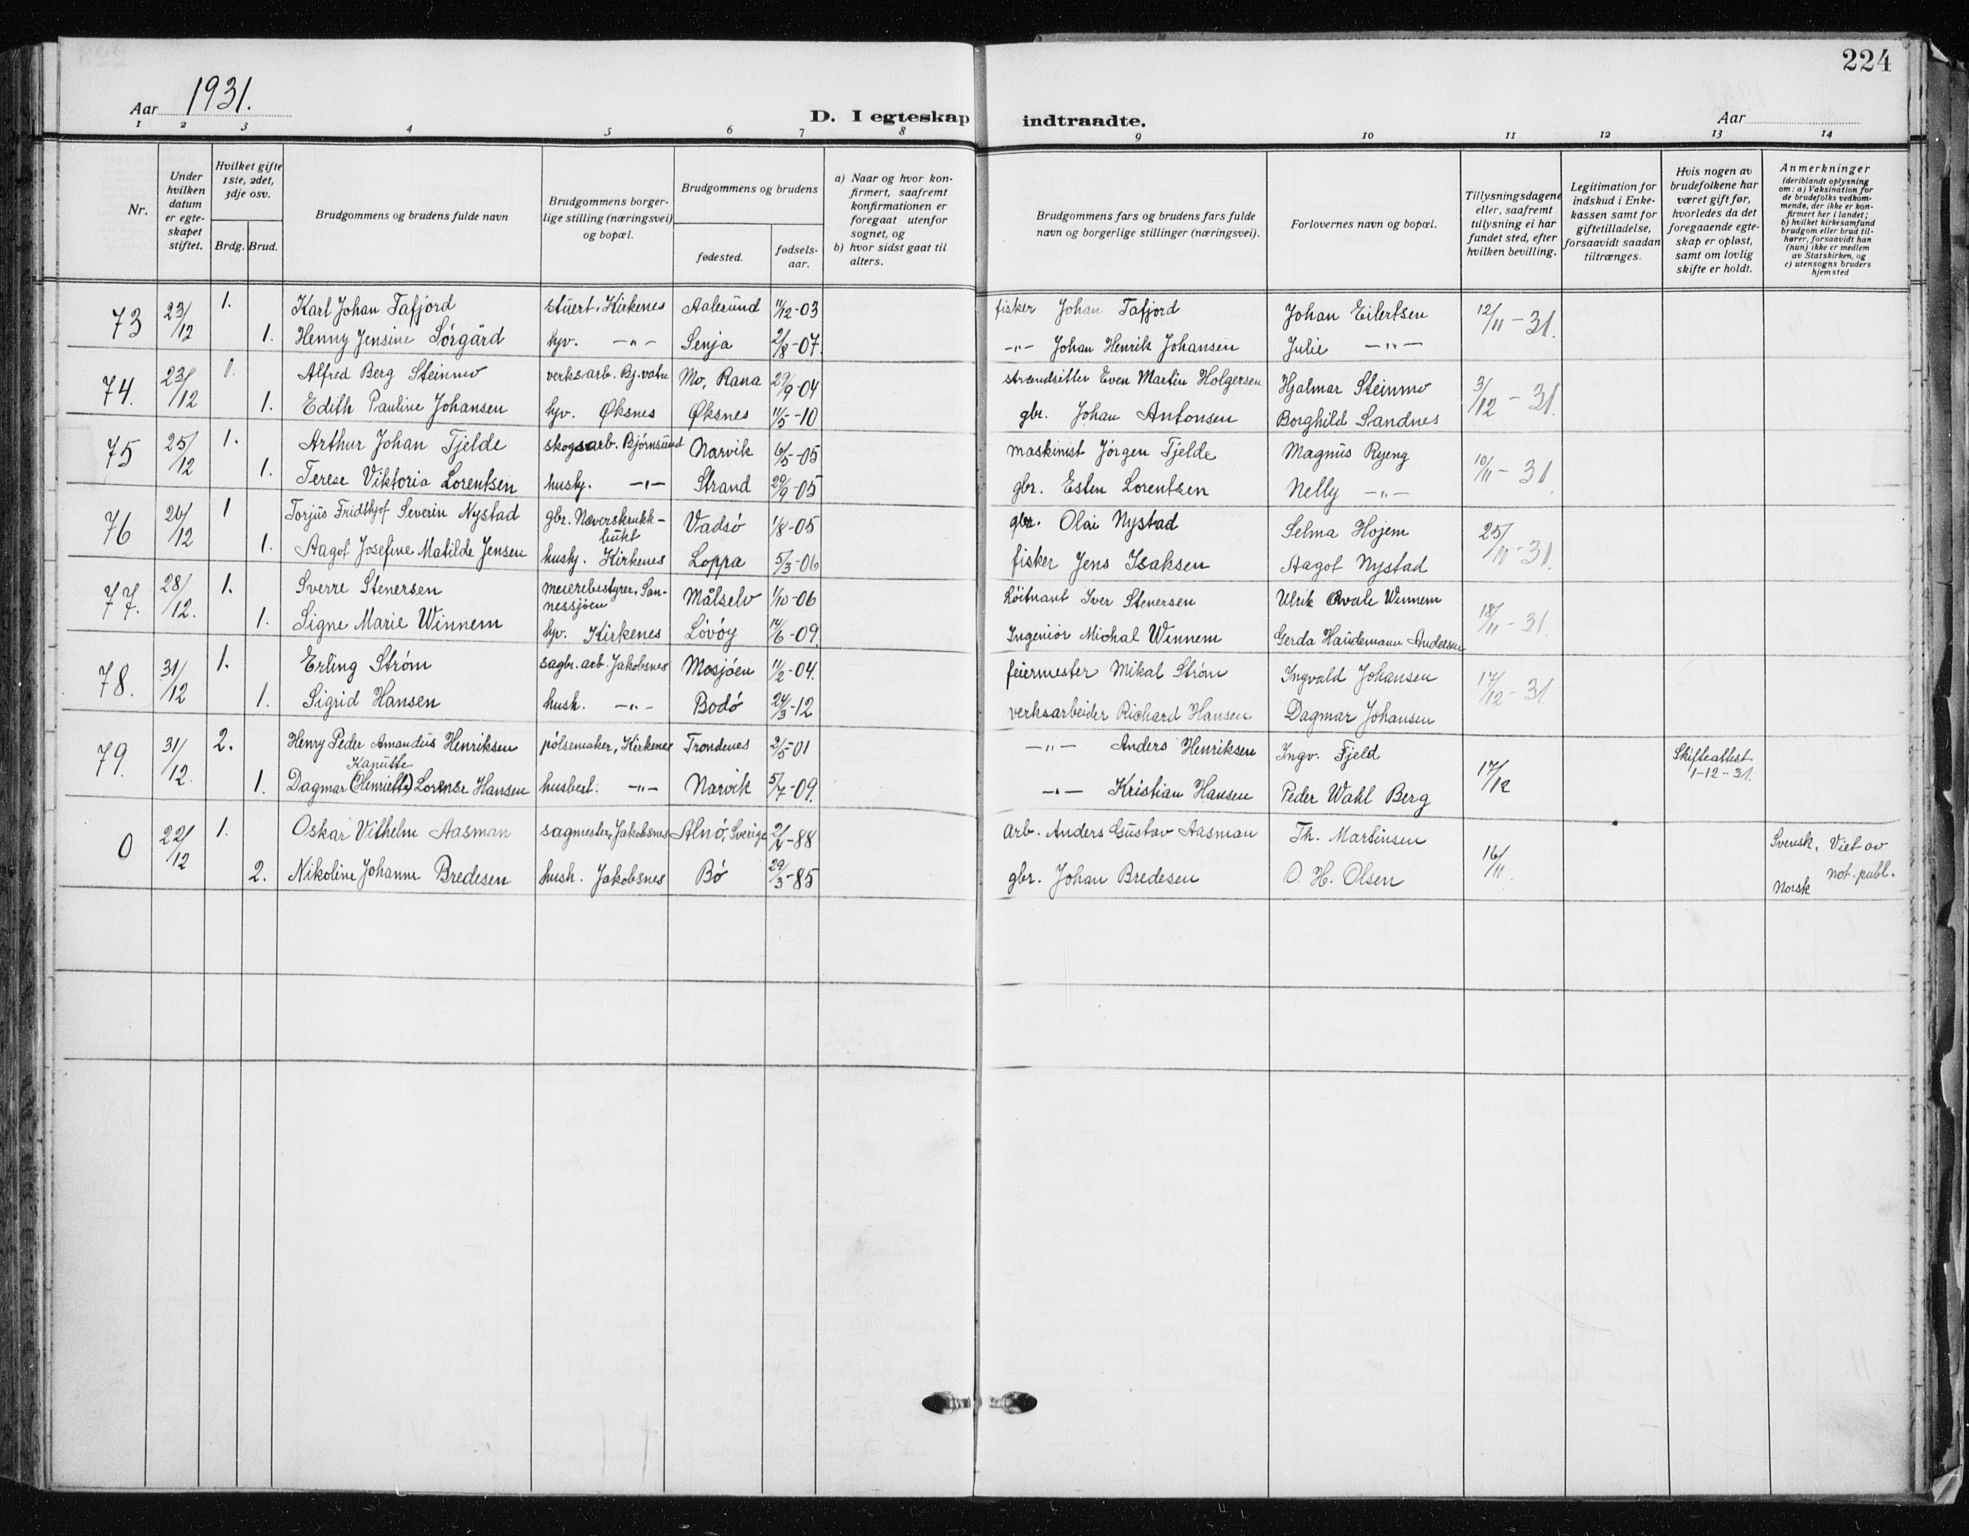 224
Aar 1931.
D. I egteskap indtraadte.
Aar
1 2 3 4 5 6 7 8 9 10 11 12 13 14
Nr.
Under hvilken datum er egteskapet stiftet.
Hvilket gifte 1ste, 2det, 3dje osv.
Brdg. Brud.
Brudgommens og brudens fulde navn
Brudgommens borgerlige stilling (næringsvei) og bopæl.
Brudgommens og brudens
fødested.
fødselsaar.
a) Naar og hvor konfirmert, saafremt konfirmationen er foregaat utenfor sognet, og
b) hvor sidst gaat til alters.
Brudgommens fars og brudens fars fulde navn og borgerlige stillinger (næringsvei).
Forlovernes navn og bopæl.
Tillysningsdagene eller, saafremt tillysning ei har fundet sted, efter hvilken bevilling.
Legitimation for indskud i Enkekassen samt for giftetilladelse, forsaavidt saadan tiltrænges.
Hvis nogen av brudefolkene har været gift før, hvorledes da det foregaaende egteskap er opløst, samt om lovlig skifte er holdt.
Anmerkninger (deriblandt oplysning om: a) Vaksination for de brudefolks vedkommende, der ikke er konfirmert her i landet; b) hvilket kirkesamfund brudgom eller brud tilhører, forsaavidt han (hun) ikke er medlem av Statskirken, og c) utensogns bruders hjemsted
73 23/12 1. Karl Johan Tafjord stuert. Kirkenes Aalesund 11/12-03 fisker Johan Tafjord Johan Eilertsen 12/11-31.
1. Henny Jensine Sørgård hjv. -"- Senja 2/8-07. -"- Johan Henrik Johansen Julie -"-
74. 23/12 1. Alfred Berg Steinmo verksarb. Bj.vatn Mo, Rana 29/9-04 strandsitter Even Martin Holgersen Hjalmar Steinmo 3/12-31.
1. Edith Pauline Johansen hjv. Øksnes Øksnes 11/5-10 gbr. Johan Antonsen Borghild Sandnes
75 25/12 1. Arthur Johan Tjelde skogsarb. Bjørnsund Narvik 6/5-05 maskinist Jørgen Tjelde Magnus Ryeng 10/11-31
1. Terese Viktoria Lorentsen husbj. -"- Strand 29/9-05 gbr. Esten Lorentsen Nelly -"-
76 26/12 1 Torjus Fridthjof Severin Nystad gbr. Neverskrukkbukt Vadsø 1/8-05 gbr. Olai Nystad Selma Hojem 25/11-31.
1. Aagot Josefine Matilde Jensen husbj. Kirkenes Loppa 5/3-06 fisker Jens Isaksen Aagot Nystad
77. 28/12. 1. Sverre Stenersen meieribestyrer. Sannessjøen Målselv 1/10-06 Løitnant Iver Stenersen Ulrik Winnem 18/11-31
1. Signe Marie Winnem hjv. Kirkenes Lövöy 14/6-09. Ingeniör Michal Winnem Gerda Andersen
78. 31/12 1. Erling Strøm sagbr. arb. Jakobsnes Mosjøen 11/2-04. feiermester Mikal Strøm Ingvald Johansen 17/12-31
1. Sigrid Hansen hush. -"- Bodö 24/3-12 verksarbeider Richard Hansen Dagmar Johansen
79. 31/12. 2. Henry Peder Amandus Henriksen pølsemaker, Kirkenes Trondenes 2/5-01 -"- Anders Henriksen Ingv. Fjeld 17/12 Skifteattest 1-12-31.
Kanutte
1. Dagmar (Henriette) Lorense Hansen husbest. -"- Narvik 5/7-09. -"- Kristian Hansen Peder Wahl Berg
0 22/12 1. Oskar Vilhelm Aasman sagmester, Jakobsnes Alnö, Sverige 2/4-88 arb. Anders Gustav Aasman Th. Martinsen 16/11 Svensk. Viet av not. publ.
2. Nikoline Johanne Bredesen hush. Jakobsnes Bö 29/3-85 gbr. Johan Bredesen O. H. Olsen Norsk